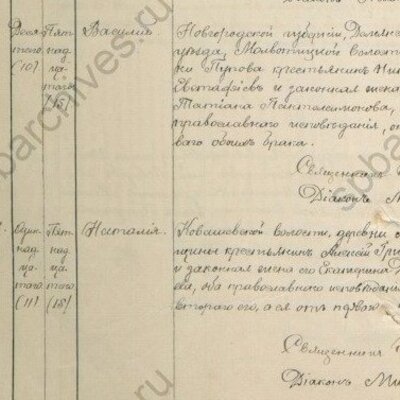 Діаконъ
Деся-
таго
(10)
Пят-
над-
ца-
таго
(15)
Василій.
Новгородской губерніи, Демянс
уѣзда, Молвотицкой волости
ни Пупова крестьянинъ Ни
Евстафіевъ и законная жена
Татіана Пантелеимонова,
православнаго исповѣданія, от
ваго обоихъ брака.
Священникъ
Діаконъ М
Один-
над-
ца-
таго
(11)
Пят-
над-
ца-
таго
(15)
Наталія.
Ковашевской волости, деревни
щины крестьянинъ Алексѣй Гри
и законная жена его Екатерина
ева, оба православнаго исповѣдані
втораго его, а ея отъ перваго
Священникъ
Діаконъ Ми
spbarchives.ru